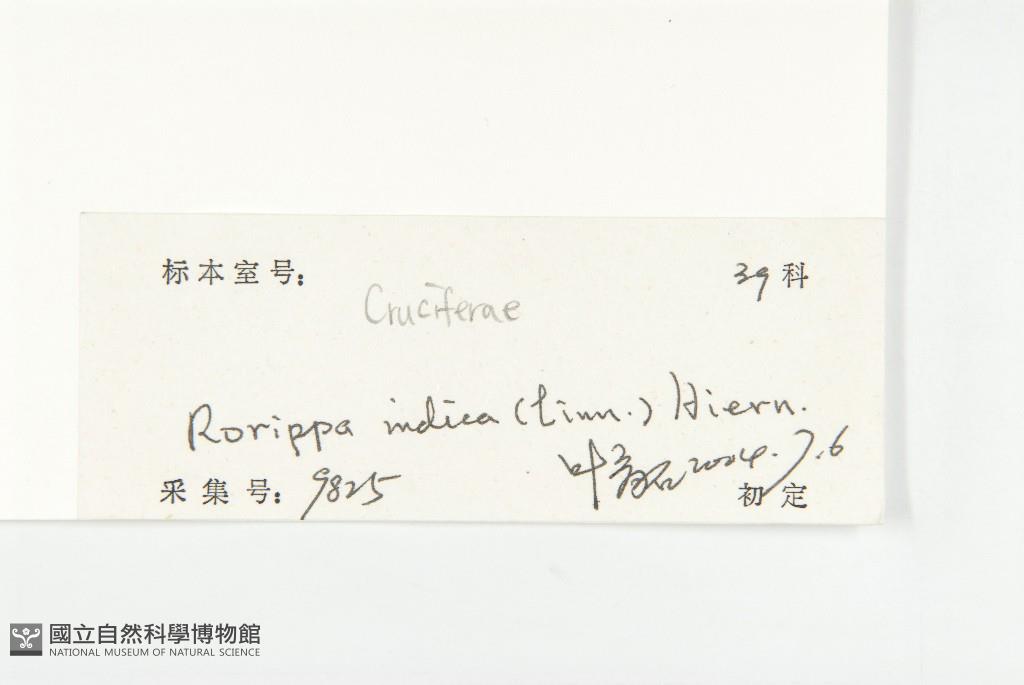 标本室号: 39科
Cruciferae
Rorippa indica (Linn.) Hiern.
叶 2004.7.6
采集号: 9825 初定
國立自然科學博物館
NATIONAL MUSEUM OF NATURAL SCIENCE